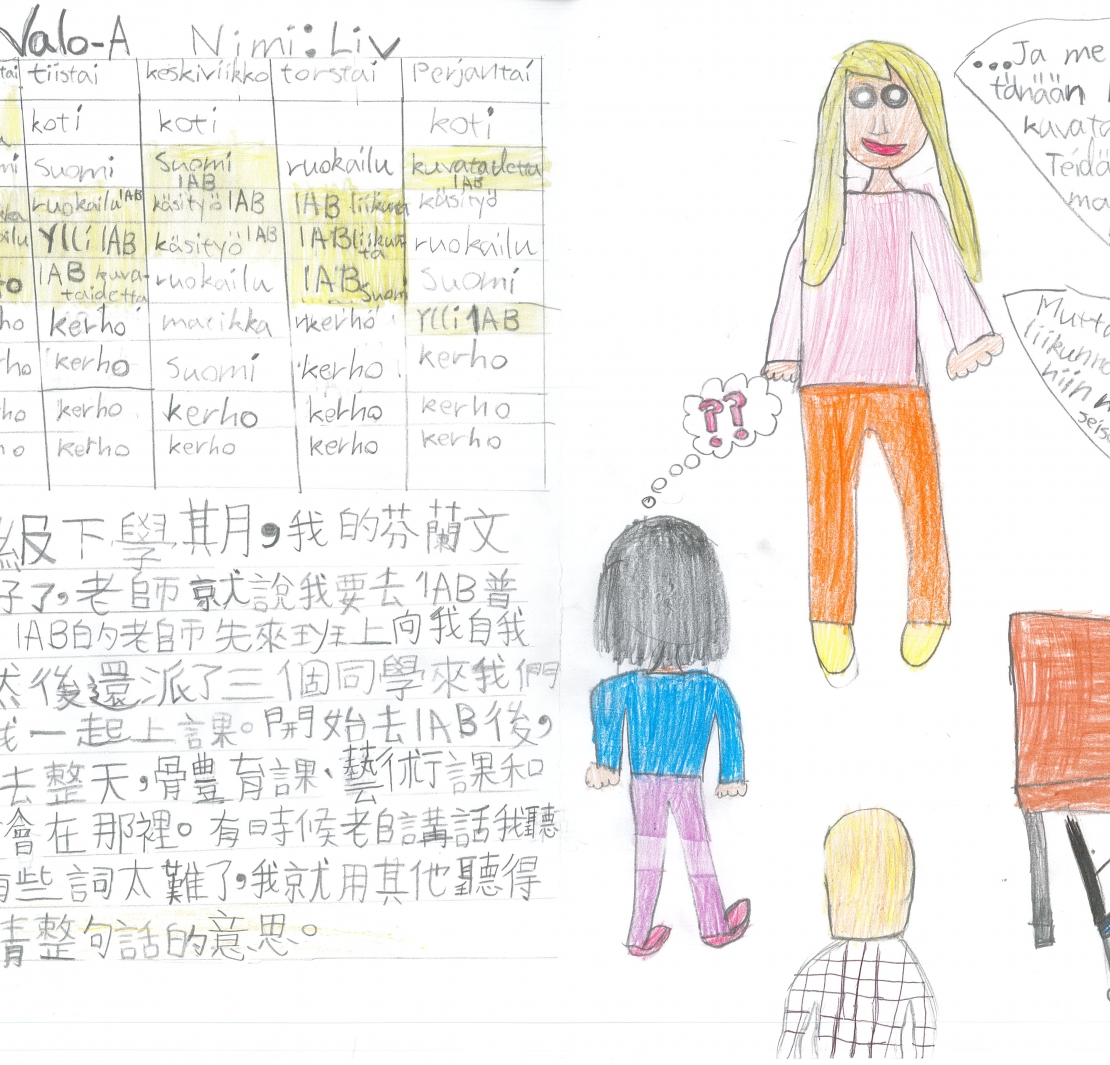 Valo-A Nimi: Liv
tai tiistai keskiviikko torstai Perjantai
koti koti koti
mi Suomi Suomi 1AB ruokailu kuvataidetta 1AB
ruokailu 1AB käsityö 1AB 1AB liikunta käsityö
ailu Ylli 1AB käsityö 1AB 1AB liikunta ruokailu
1AB kuva-taidetta ruokailu 1AB Suomi Suomi
ho kerho kerho Ylli 1AB
rho kerho Suomi kerho kerho
ho kerho kerho kerho kerho
ho kerho kerho kerho kerho
級下學其月,我的芬蘭文
子了,老師就說我要去1AB普
1AB的老師先來班上向我自我
然後還派了三個同學來我們
我一起上課。開始去1AB後,
去整天,體育課、藝術課和
會在那裡。有時候老師講話我聽
有些詞太難了,我就用其他聽得
清整句話的意思。
...Ja me
tänään
kuvata
Teidä
ma
??
Mutta
liikunna
niin m
seiso